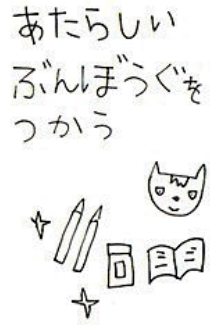 あたらしい
ぶんぼうぐを
つかう